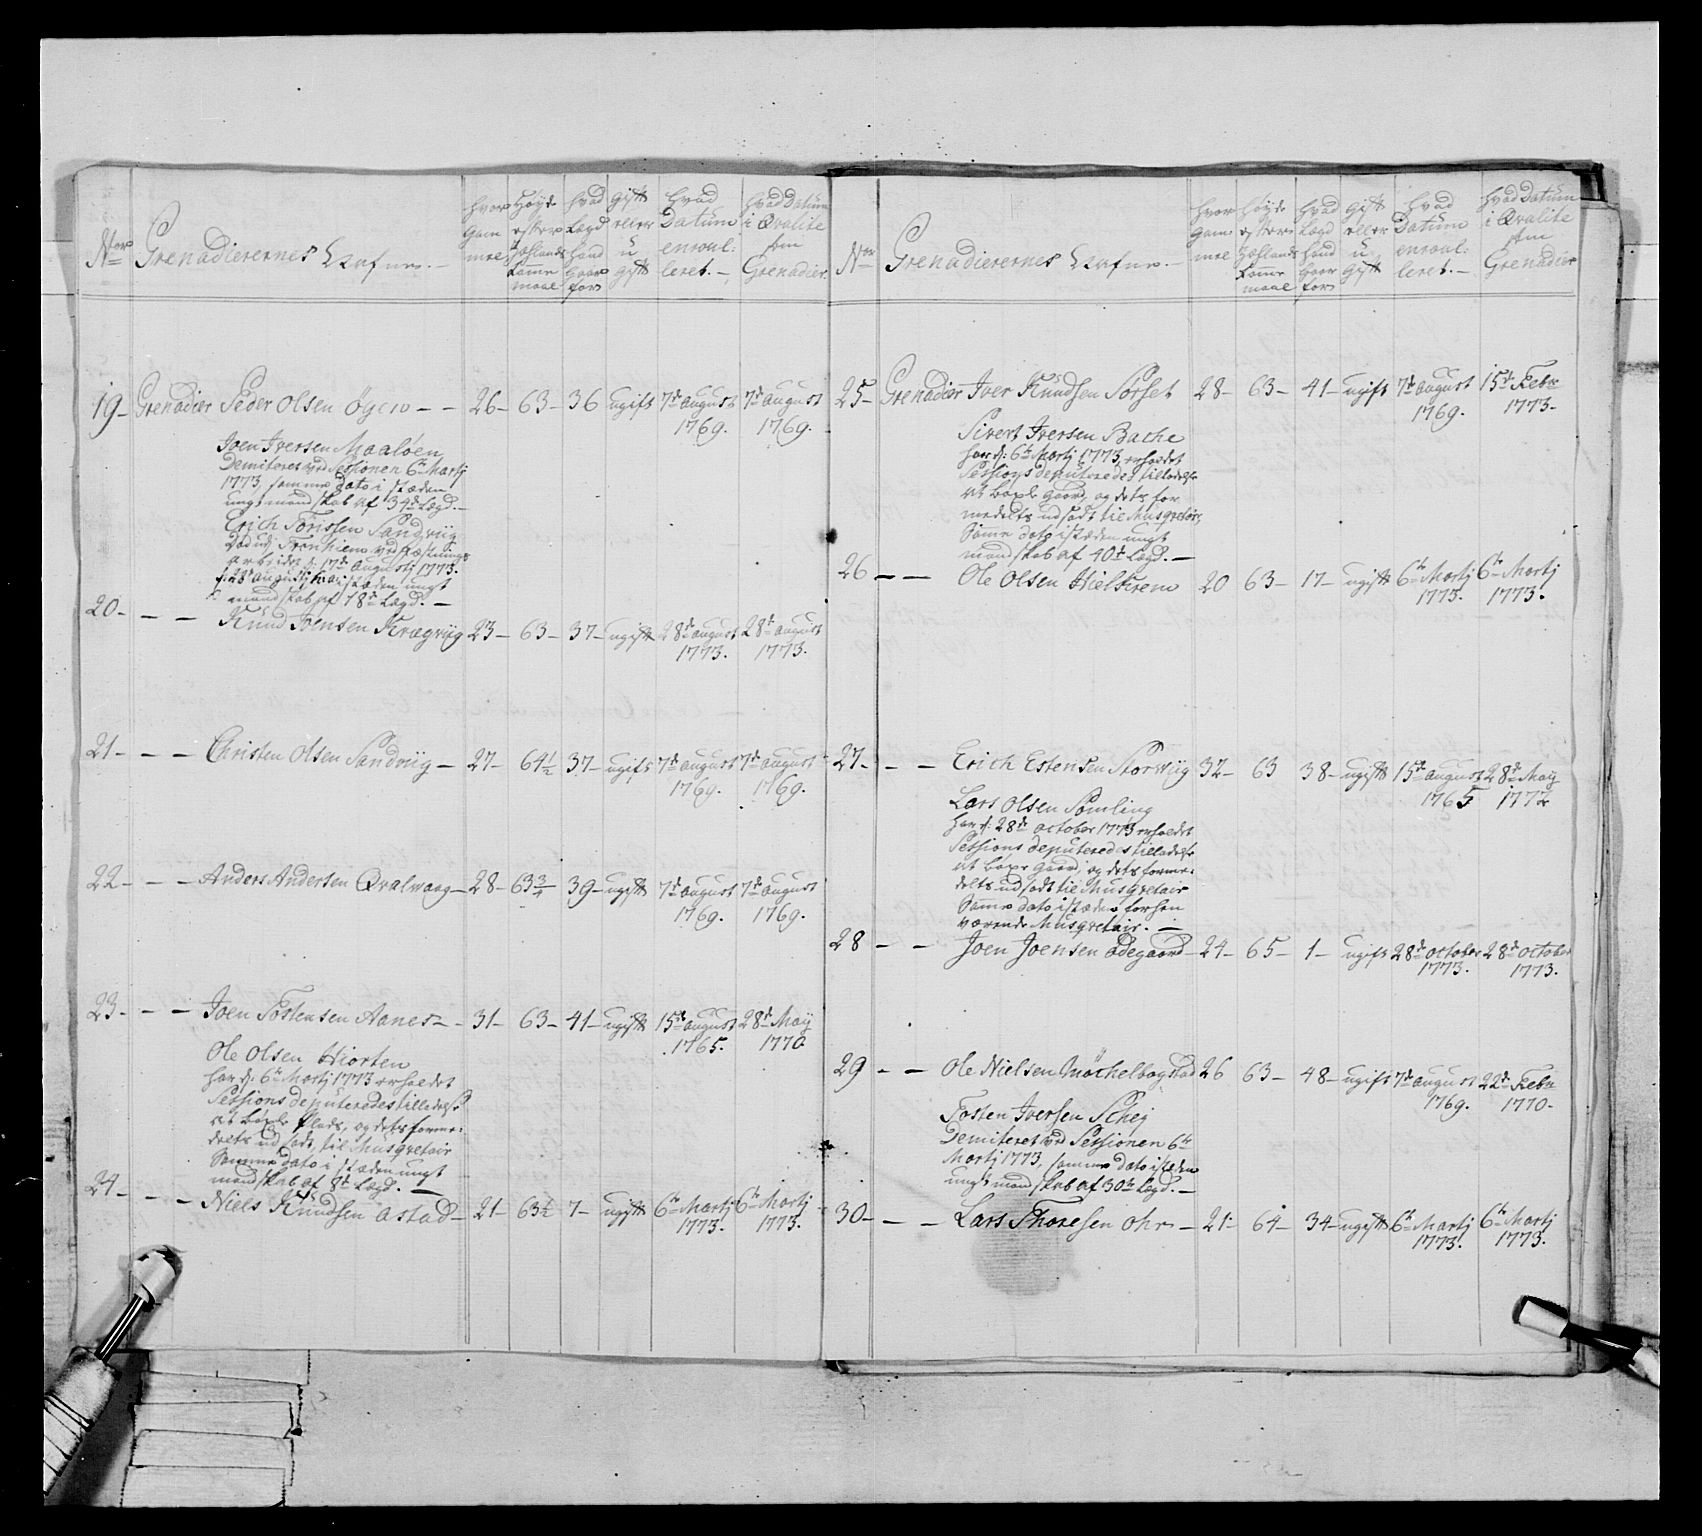 Nor
Grenadierernes Nafne.
hvor Gam mel
Høyde efter Zeslands Komme maal
hvad Lægd hand Gaar for
Gift eller u gift
hvad Datum enroul: leret.
hvad Datum i Qvalite som Grenadier.
19 - Grenadier Peder Olsen Øyen - - 26 - 63 - 36 ugift 7de august 1769. 7de august 1769.
Joen Iversen Maaløen
Demiteret ved Sessionen 6te Martj
1773, samme dato i stæden
ungt mandskab af 34de Lægd. -
Erich Sandviig
Død udj Tronhiem ved Fæstnings
arbeidet d: 17de Augustj 1773.
d: 28de Augustj i stæden ungt
mandskab af 18de Lægd. -
20 - - - Knud Joensen Kragviig 23 - 63 - 37 - ugift 28de august 1773. 28de august 1773.
21 - - - Christen Olsen Sandviig - 27 - 64½ 37 - ugift 7de august 1769. 7de august 1769.
22 - - - Anders Andersen Qvalwaag - 28 - 63¾ 39 - ugift 7de august 1769. 7de august 1769.
23 - - - Joen Tostensen Aanes - 31 - 63 - 41 - ugift 15de august 1765. 28de May 1770
Ole Olsen Hiorten
har d: 6te Martj 1773 erholdet
Sessions deputeredes tilladelse
at böxle Plads, og dets forme:
delst udsadt til Musqvetair
Samme dato i stæden ungt
mandskab af 8de Lægd. -
24 - - - Niels Knudsen Astad - 21 - 63½ 7 - ugift 6te Martj 1773. 6te Martj 1773.
Nor
Grenadierernes Nafne -
hvor Gam mel
høyde efter Zeslands Komme maal
hvad Lægd hand Gaar for
Gift eller u gift
hvad Datum enroul: leret. -
hvad Datum i Qvalite som Grenadier
25 - Grenadier Iver Knudsen Sørset 28 - 63 - 41 - ugift 7de august 1769. 15de Febr 1773 -
Sivert Iversen Bache
har d: 6te Martj 1773, erholdet
Sessions deputeredes tilladelse
at böxle Gaard, og dets for
medelst udsadt til Musqvetair,
Samme dato i stæden ungt
mandskab af 40de Lægd. -
26 - - Ole Olsen Hielkrem 20 63 - 17 - ugift 6te Martj 1773. 6te Martj 1773.
27 - - - Erich Estensen Storwiig 32 - 63 38 - ugift 15de august 1765 28de May 1772
Lars Olsen Sømling
har d: 28de October 1773 erholdet
Sessions deputeredes tilladelse
at böxle Gaard, og dets forme:
delst udsadt til Musqvetair
Samme dato i stæden forhen
værende Musqvetair. -
28 - - Joen Joensen Ødegaard - 24 - 65 - 1 - ugift 28de October 1773. 28de October 1773.
29 - - Ole Nielsen Møchelbogstad 26 63 - 48 - ugift 7de august 1769. 22de Febr 1770 -
Tosten Iversen Schej
Demiteret ved Sessionen 6te
Martj 1773, samme dato i stæden
ungt mandskab af 30te Lægd. -
30 - - - Lars Thoresen Ohr - 21 - 64 - 34 - ugift 6te Martj 1773. 6te Martj 1773.